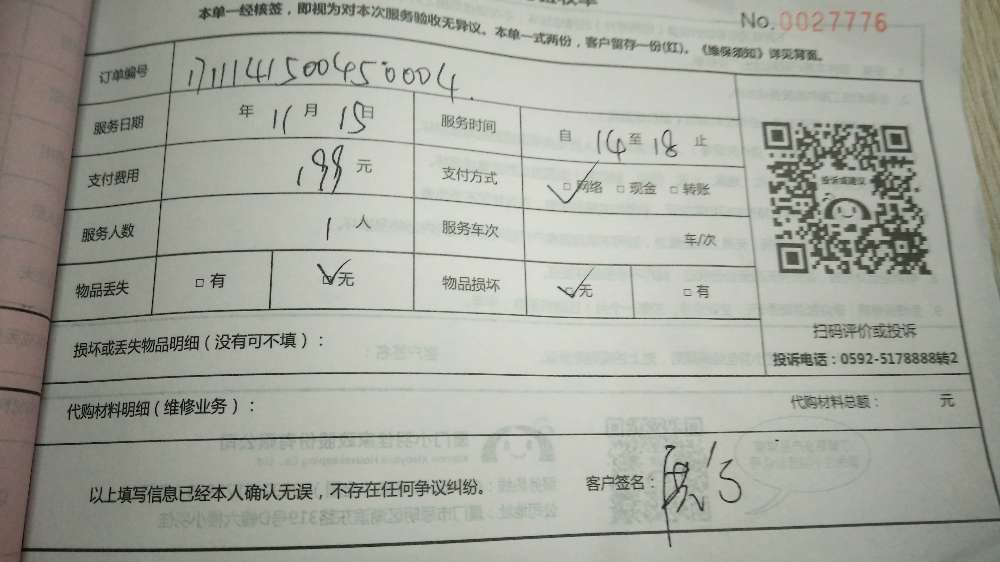 本单一经核签，即视为对本次服务验收无异议。本单一式两份，客户留存一份(红)。《维保须知》详见背面。
No.0027776
订单编号 1711141500450004.
服务日期 年 11 月 15 日 服务时间 自 14 至 18 止
支付费用 199 元 支付方式 □网络 □现金 □转账
投诉或建议
服务人数 1 人 服务车次 车/次
物品丢失 □有 □无 物品损坏 □无 □有
扫码评价或投诉
损坏或丢失物品明细（没有可不填）：
投诉电话：0592-5178888转2
代购材料明细（维修业务）： 代购材料总额： 元
以上填写信息已经本人确认无误，不存在任何争议纠纷。 客户签名：